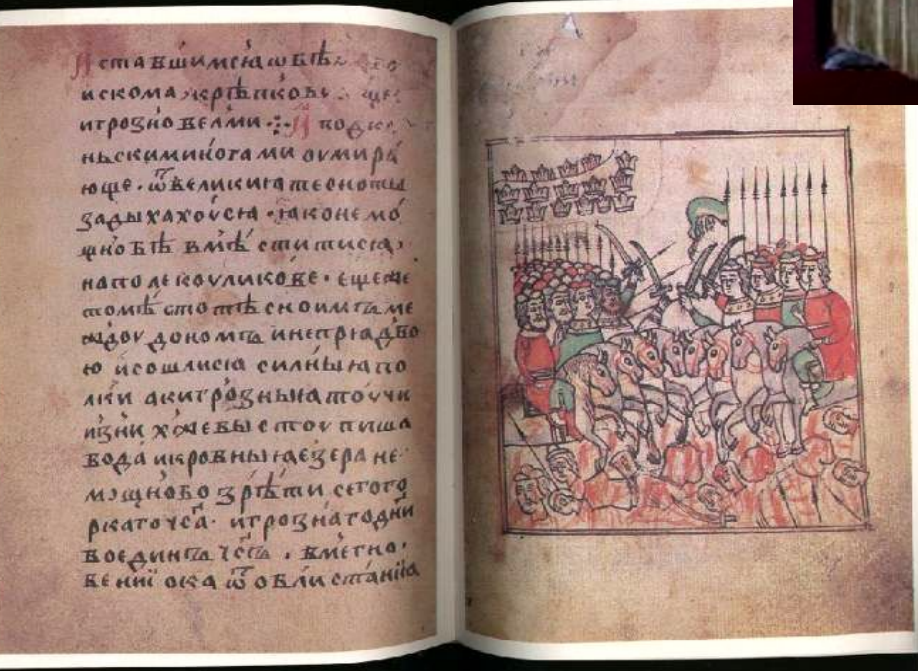 ставшимсѧ ѡбѣ
искома крѣпко
игрозно велми ⁘ подко
ньскиминогами оумира
юще · ѿвеликиꙗ тесноты
задыхахоусѧ · ꙗконе мо
щно бѣ вмѣститисѧ ·
наполе коуликове · ещеже
томѣсто тѣсноимъ ме
ждоу дономъ инепрѧдво
ю исошлисѧ силныꙗ по
лки акигрозныꙗ тоучи
изни хжевы стоупиша
вода икровныꙗ езера не
мощнобо зрѣти сегого
ркагочса · игрознагодни
воединъ чсъ · вмегно
вении ока ѿ облистаниꙗ